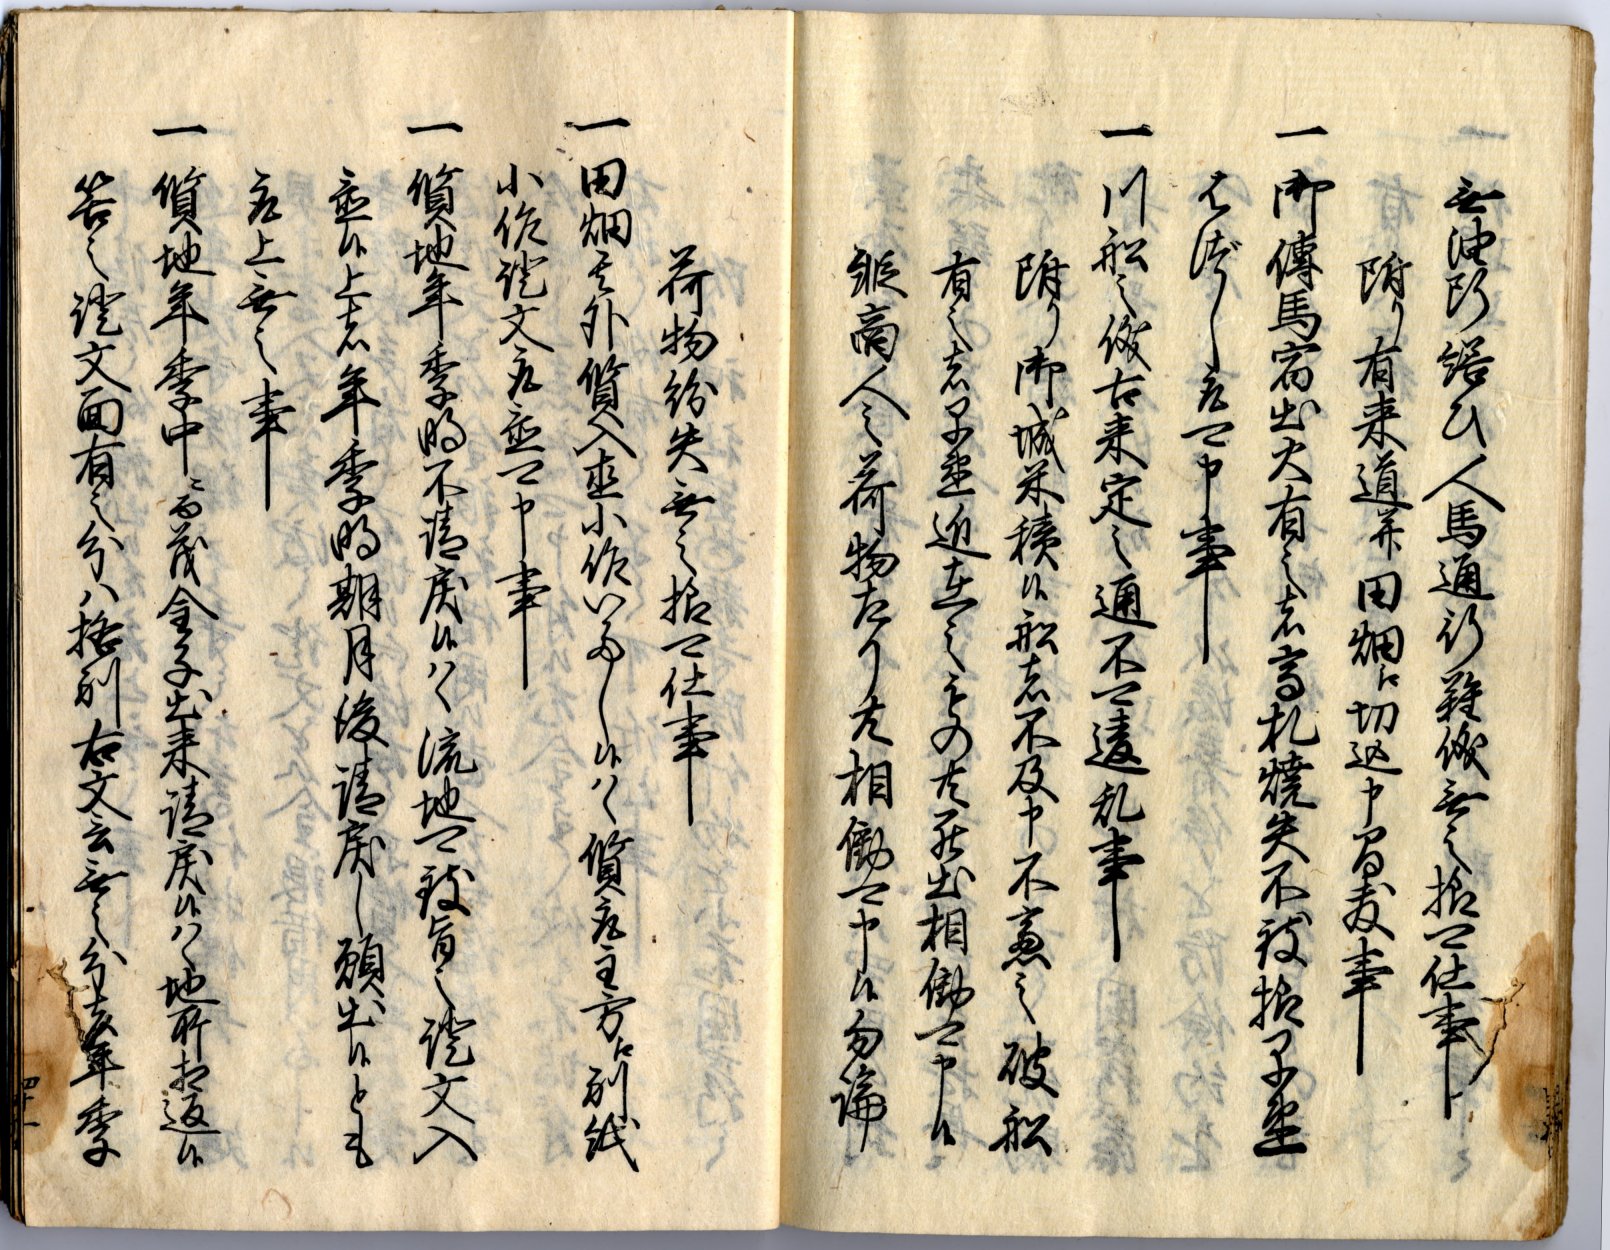 無油断繕ひ人馬通行難儀無之様可仕事
附り有来道并田畑江切込申間敷事
一御傳馬宿出火有之者高札焼失不致様早速
はづし取可申事
一川船之儀古来定之通不可違乱事
附り御城米積候船者不及申不慮之破船
有之者早速近在之もの共罷出相働可申候
縦商人之荷物たり共相働可申候勿論
荷物紛失無之様可仕事
一田畑其外質入直小作いたし候ハヽ質取主方江別紙
小作證文取置可申事
一質地年季明不請戻候ハヽ流地可致旨之證文入
置候上者年季明期月後請戻し願出候とも
取上無之事
一質地年季中ニ而茂金子出来請戻候ハヽ地所相返候
筈之證文面有之分ハ格別右文言無之分者年季
四十一